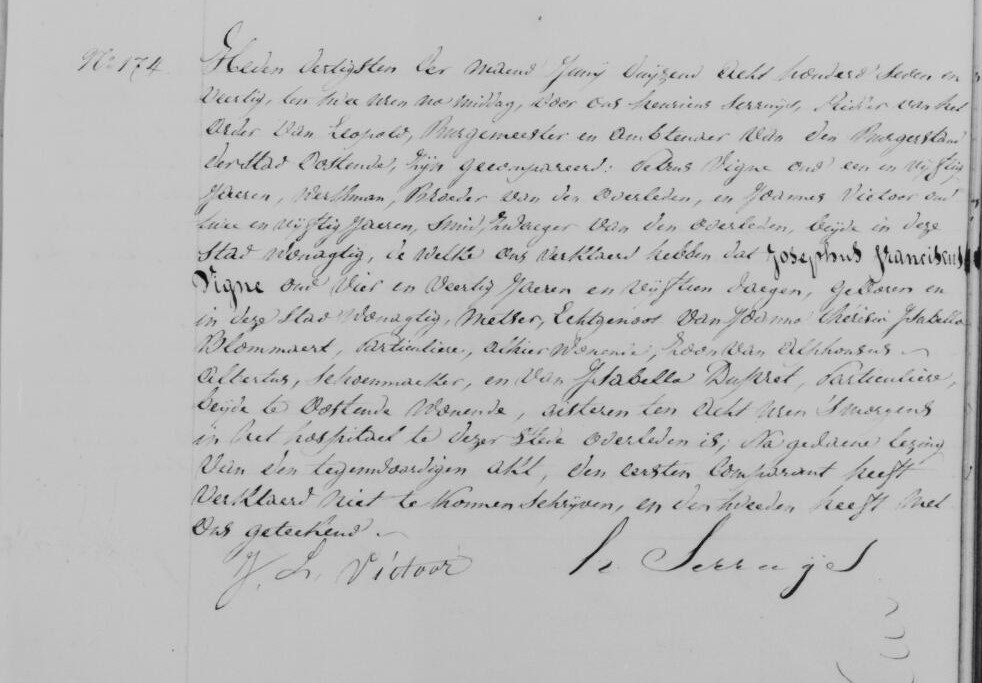 No 174
Heden dertigsten der maend Juny duyzend acht honderd seden en
veertig, ten twee uren na middag, voor ons henricus Serruys, Ridder van het
order van Leopold, Burgemeester en ambtenaer van den Burgerstand
der stad Oostende, zyn gecompareerd: Petrus Vigne oud een en vyftig
Jaeren, werkman, Broeder van den overleden, en Joannes Victoor oud
twee en vyftig Jaeren, Smid, Zwaeger van den overleden, beyde in deze
stad wonagtig, de welke ons verklaerd hebben dat Josephus Franciscus
Vigne oud vier en veertig Jaeren en vyftien daegen, geboren en
in deze stad wonagtig, metser, Echtgenoot van Joanna Theresia Isabella
Blommaert, particuliere, alhier wonende, zoon van Alphonsus
Albertus, schoenmaeker, en van Isabella Duprét, particuliere,
beyde te Oostende wonende, gisteren ten acht uren 'smorgens
in het hospitael te dezer stede overleden is; Na gedaene lezing
van den tegenwoordigen akt, den eersten Comparant heeft
verklaerd niet te konnen schryven, en den tweeden heeft met
ons geteekend.
J. L. Victoor
h. Serruys